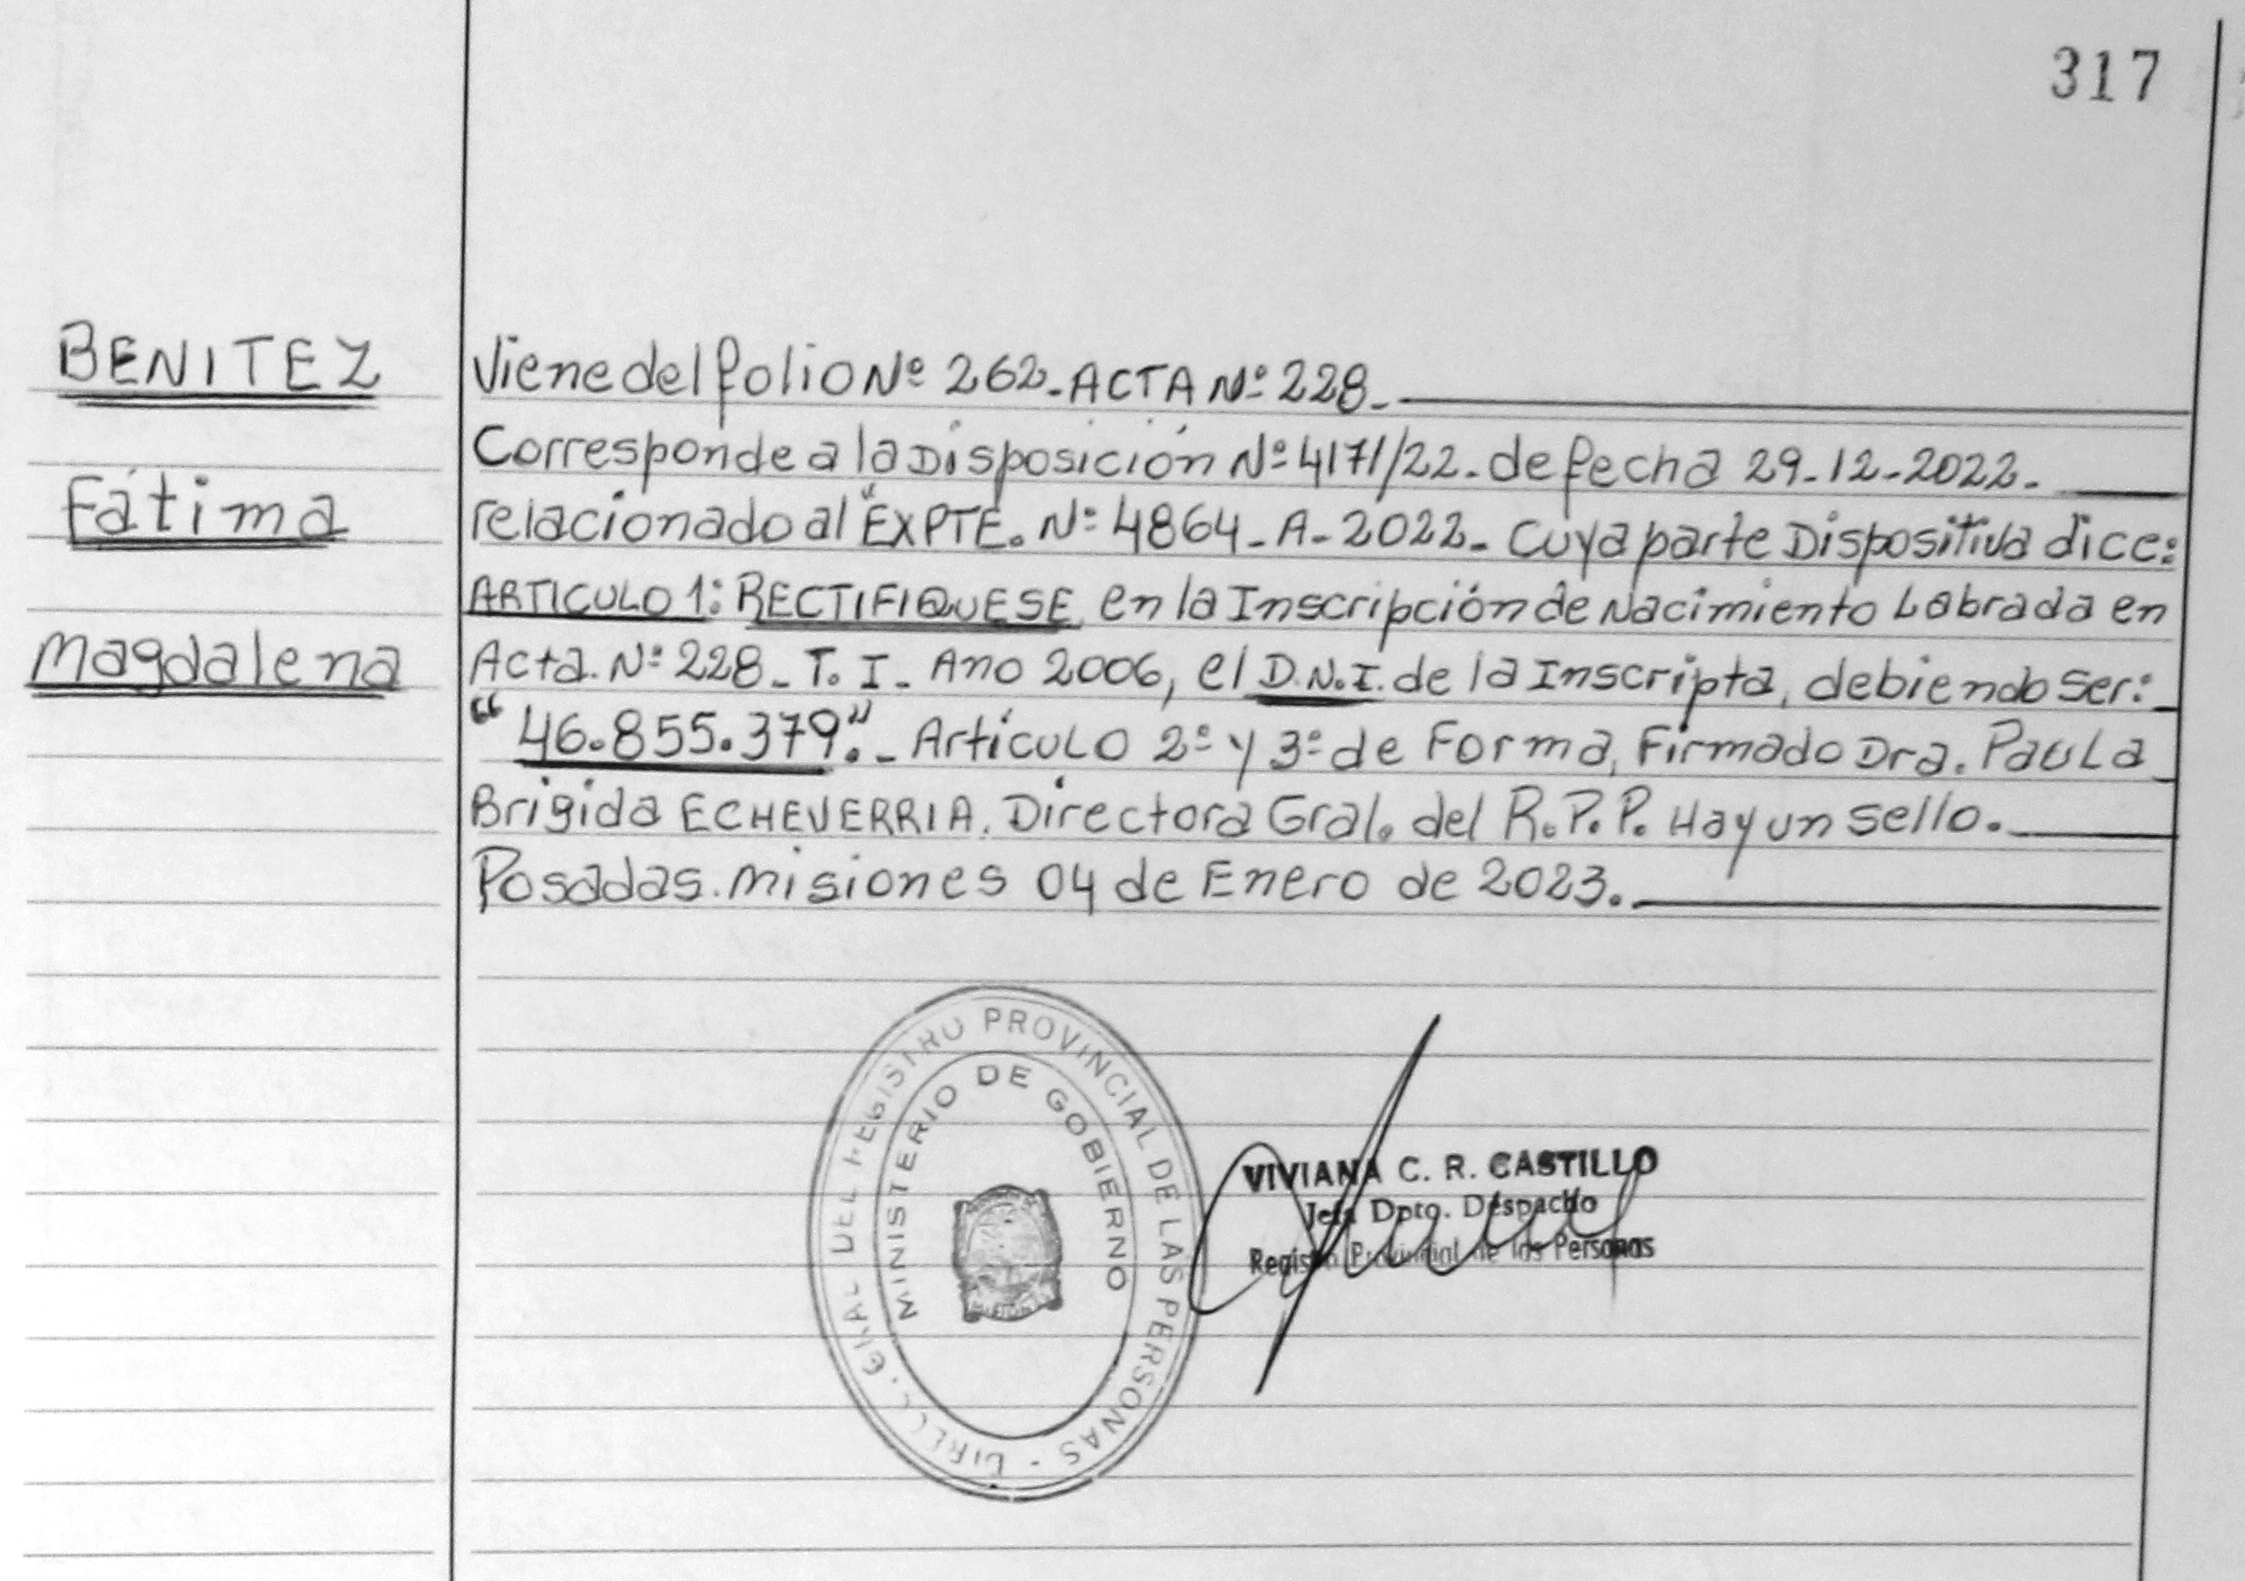 317
BENITEZ
Fátima
Magdalena
Viene del folio Nº 262-ACTA Nº 228.-
Corresponde a la Disposición Nº 4171/22. de fecha 29-12-2022.
relacionado al "EXPTE. Nº 4864-A-2022- Cuya parte Dispositiva dice:
ARTICULO 1: RECTIFIQUESE en la Inscripción de Nacimiento Labrada en
Acta. Nº 228- T. I- Año 2006, el D.N.I. de la Inscripta, debiendo ser:
"46.855.379".- Artículo 2º y 3º de Forma, Firmado Dra. Paula
Brigida ECHEVERRIA. Directora Gral. del R.P.P. Hay un sello.
Posadas. Misiones 04 de Enero de 2023.
DIRECC. GRAL DEL REGISTRO PROVINCIAL DE LAS PERSONAS -
MINISTERIO DE GOBIERNO
VIVIANA C. R. CASTILLO
Jefa Dpto. Despacho
Registro Provincial de las Personas